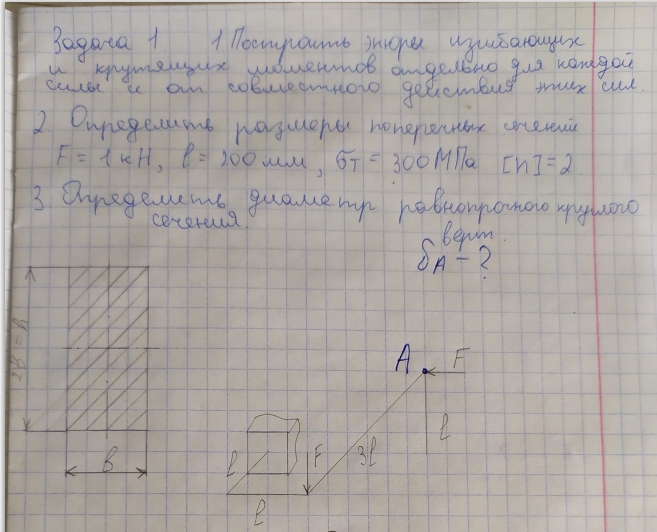 Задача 1. 1 Построить эпюры изгибающих
и крутящих моментов отдельно для каждой
силы и от совместного действия этих сил.
2. Определить размеры поперечных сечений
F = 1 кН, l = 200 мм, σт = 300 МПа [n] = 2
3 Определить диаметр равнопрочного круглого
сечения.
верт.
δA - ?
2в = h
в
A
F
l
3l
F
l
l